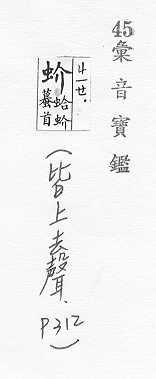 45彙音寶鑑
ㄐㄧㄝ.
蚧
蛤蚧
蟇首
(皆上去聲.
P312
)